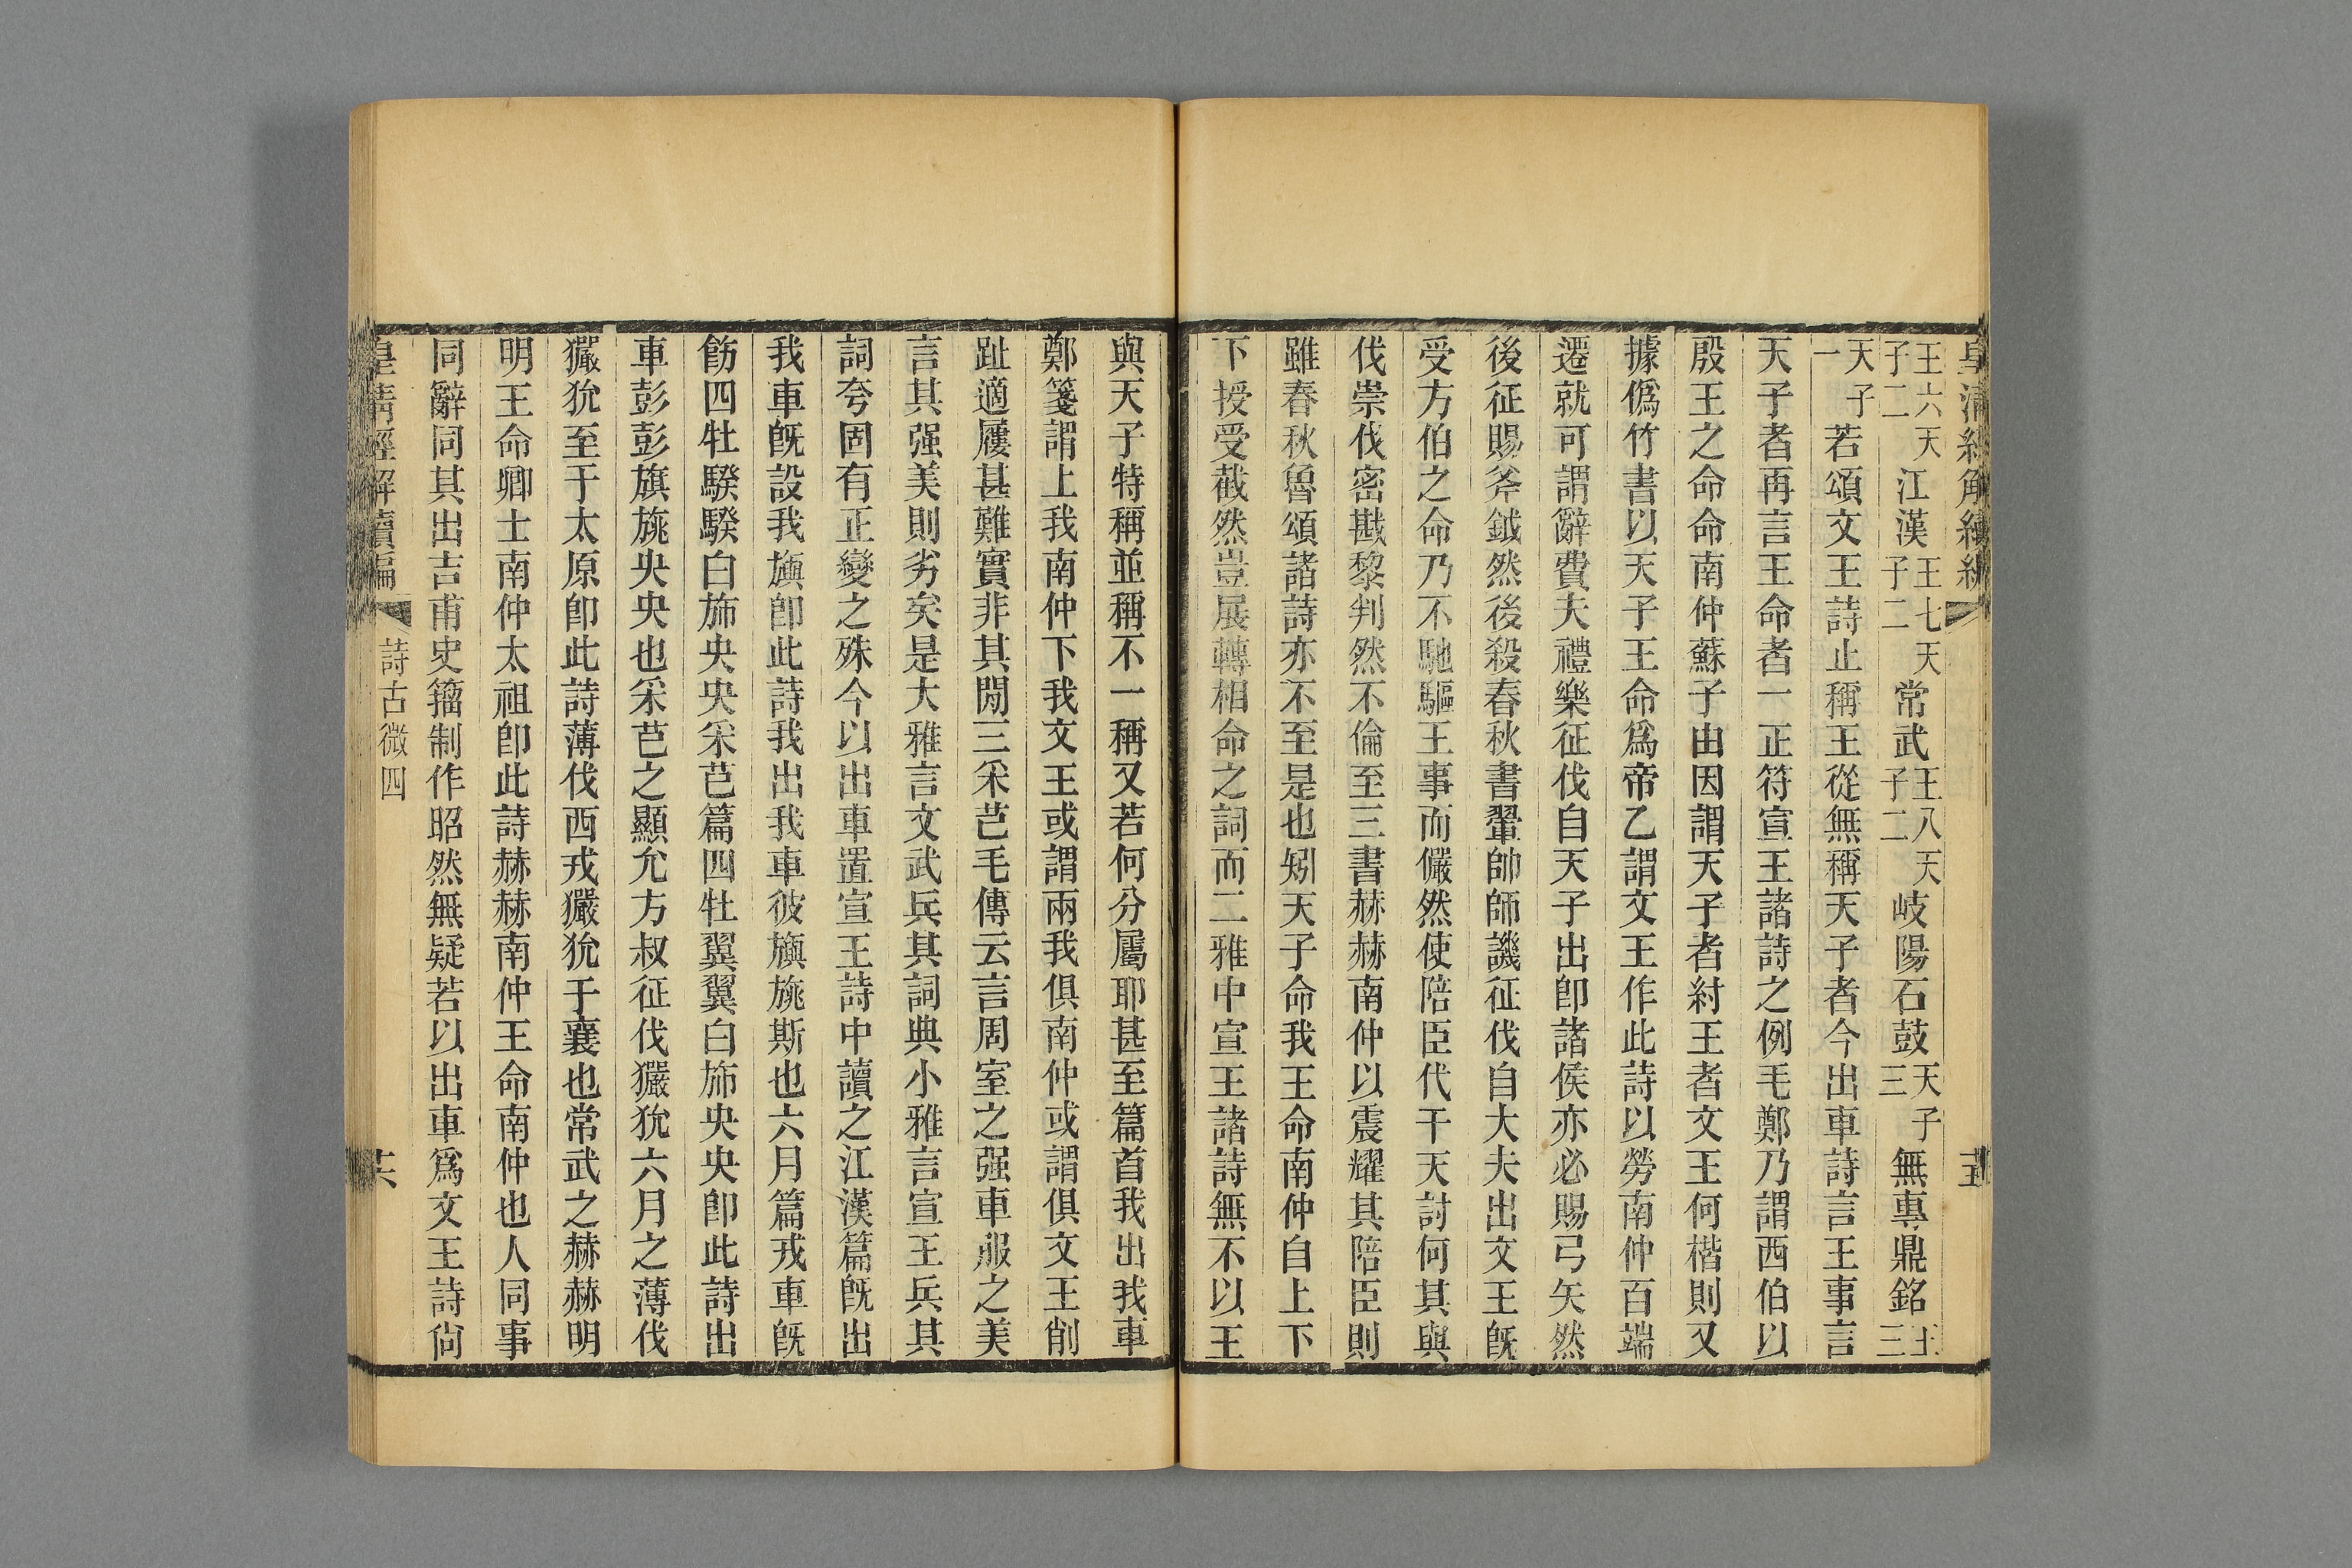 王六天子二江漢王七天子二常武王八天子二岐陽石鼓天子三無專鼎銘王三
天子一若頌文王詩止稱王從無稱天子者今出車詩言王事言
天子者再言王命者一正符宣王諸詩之例毛鄭乃謂西伯以
殷王之命命南仲蘇子由因謂天子者紂王者文王何楷則又
據僞竹書以天子王命爲帝乙謂文王作此詩以勞南仲百端
遷就可謂辭費夫禮樂征伐自天子出卽諸侯亦必賜弓矢然
後征賜斧鉞然後殺春秋書翬帥師譏征伐自大夫出文王旣
受方伯之命乃不馳驅王事而儼然使陪臣代干天討何其與
伐崇伐密戡黎判然不倫至三書赫赫南仲以震耀其陪臣則
雖春秋魯頌諸詩亦不至是也矧天子命我王命南仲自上下
下授受截然豈展轉相命之詞而二雅中宣王諸詩無不以王
與天子特稱並稱不一稱又若何分屬耶甚至篇首我出我車
鄭箋謂上我南仲下我文王或謂兩我俱南仲或謂俱文王削
趾適屨甚難實非其閒三采芑毛傳云言周室之强車服之美
言其强美則劣矣是大雅言文武兵其詞典小雅言宣王兵其
詞夸固有正變之殊今以出車置宣王詩中讀之江漢篇旣出
我車旣設我旟卽此詩我出我車彼旟旐斯也六月篇戎車旣
飭四牡騤騤白旆央央采芑篇四牡翼翼白旆央央卽此詩出
車彭彭旗旐央央也采芑之顯允方叔征伐玁狁六月之薄伐
玁狁至于太原卽此詩薄伐西戎玁狁于襄也常武之赫赫明
明王命卿士南仲太祖卽此詩赫赫南仲王命南仲也人同事
同辭同其出吉甫史籀制作昭然無疑若以出車爲文王詩尙
皇淸經解續編
詩古微四